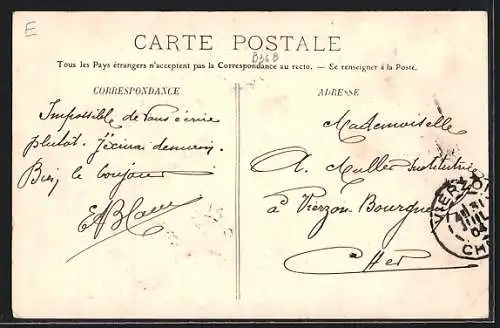 E
CARTE POSTALE
B36B
Tous les Pays étrangers n'acceptent pas la Correspondance au recto. — Se renseigner à la Poste.
CORRESPONDANCE
Impossible de vous écrire
plutôt. J'écirai demain.
Bien le bonjour
EBlanc
ADRESSE
Mademoiselle
A. Muller Institutrice
à Vierzon-Bourgneuf
Cher
VIERZON
31
JUIL
04
CHER